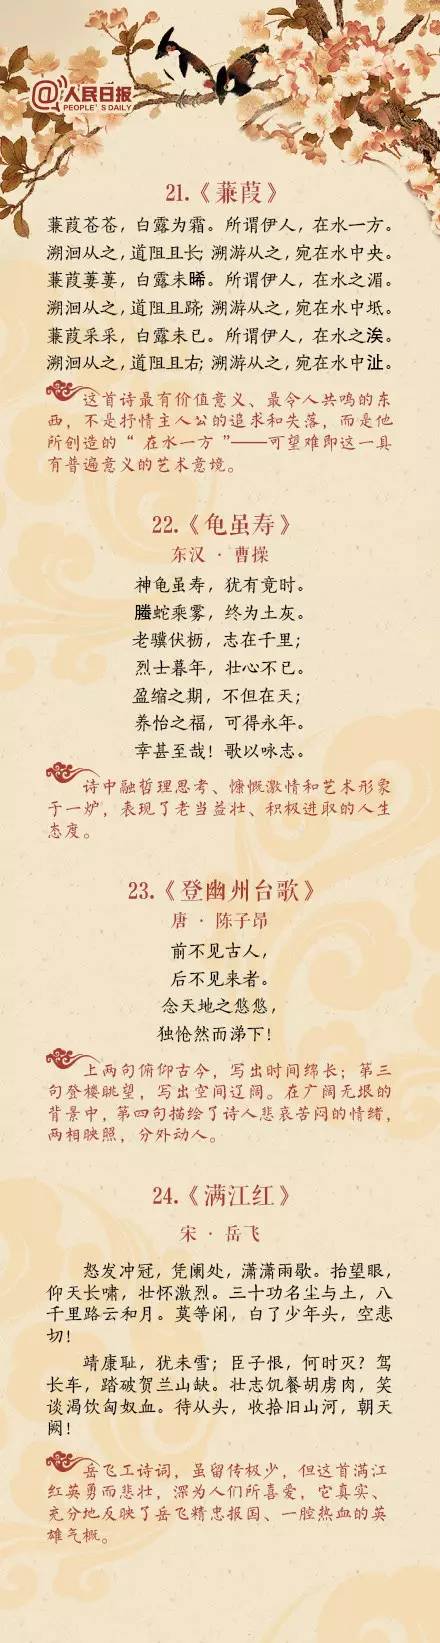 @人民日报
PEOPLE'S DAILY
21.《蒹葭》
蒹葭苍苍，白露为霜。所谓伊人，在水一方。
溯洄从之，道阻且长；溯游从之，宛在水中央。
蒹葭萋萋，白露未晞。所谓伊人，在水之湄。
溯洄从之，道阻且跻；溯游从之，宛在水中坻。
蒹葭采采，白露未已。所谓伊人，在水之涘。
溯洄从之，道阻且右；溯游从之，宛在水中沚。
这首诗最有价值意义、最令人共鸣的东
西，不是抒情主人公的追求和失落，而是他
所创造的“在水一方”——可望难即这一具
有普遍意义的艺术意境。
22.《龟虽寿》
东汉·曹操
神龟虽寿，犹有竟时。
螣蛇乘雾，终为土灰。
老骥伏枥，志在千里；
烈士暮年，壮心不已。
盈缩之期，不但在天；
养怡之福，可得永年。
幸甚至哉！歌以咏志。
诗中融哲理思考、慷慨激情和艺术形象
于一炉，表现了老当益壮、积极进取的人生
态度。
23.《登幽州台歌》
唐·陈子昂
前不见古人，
后不见来者。
念天地之悠悠，
独怆然而涕下！
上两句俯仰古今，写出时间绵长；第三
句登楼眺望，写出空间辽阔。在广阔无垠的
背景中，第四句描绘了诗人悲哀苦闷的情绪，
两相映照，分外动人。
24.《满江红》
宋·岳飞
怒发冲冠，凭阑处，潇潇雨歇。抬望眼，
仰天长啸，壮怀激烈。三十功名尘与土，八
千里路云和月。莫等闲，白了少年头，空悲
切！
靖康耻，犹未雪；臣子恨，何时灭？驾
长车，踏破贺兰山缺。壮志饥餐胡虏肉，笑
谈渴饮匈奴血。待从头，收拾旧山河，朝天
阙！
岳飞工诗词，虽留传极少，但这首满江
红英勇而悲壮，深为人们所喜爱，它真实、
充分地反映了岳飞精忠报国、一腔热血的英
雄气概。